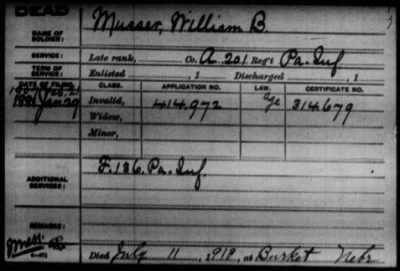 DEAD
NAME OF SOLDIER:
Musser, William B.
SERVICE:
Late rank, Co. A 201 Reg't Pa. Inf
TERM OF SERVICE:
Enlisted , 1 Discharged , 1
DATE OF FILING. CLASS. APPLICATION NO. LAW. CERTIFICATE NO.
1881 Jan 29 Invalid, 414,972 Age 314679
Widow,
Minor,
ADDITIONAL SERVICES:
F. 136. Pa. Inf.
REMARKS:
6-412
Died July 11, 1918, at Burket Nebr